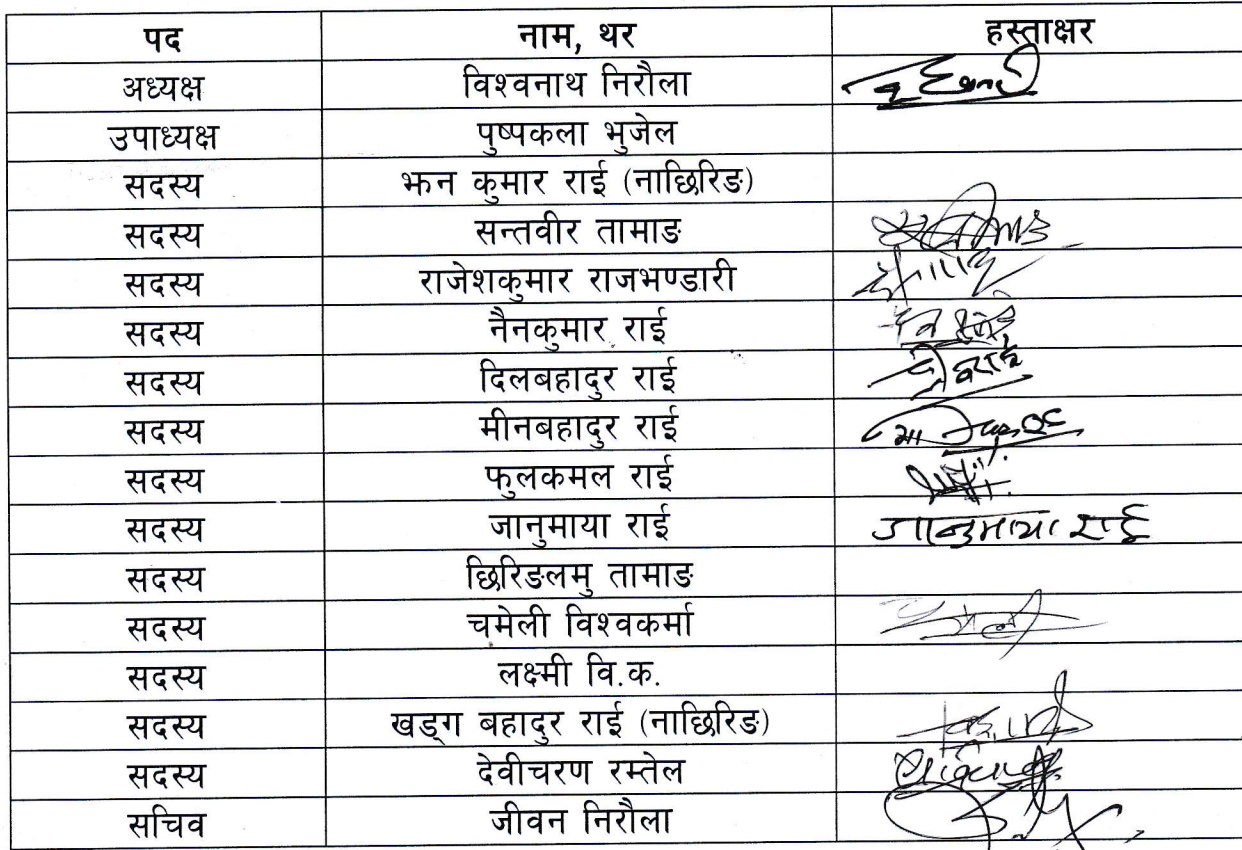 पद नाम, थर हस्ताक्षर
अध्यक्ष विश्वनाथ निरौला
उपाध्यक्ष पुष्पकला भुजेल
सदस्य झन कुमार राई (नाछिरिङ)
सदस्य सन्तवीर तामाङ
सदस्य राजेशकुमार राजभण्डारी
सदस्य नैनकुमार राई
सदस्य दिलबहादुर राई
सदस्य मीनबहादुर राई
सदस्य फुलकमल राई
सदस्य जानुमाया राई जानुमाया राई
सदस्य छिरिङलमु तामाङ
सदस्य चमेली विश्वकर्मा
सदस्य लक्ष्मी वि.क.
सदस्य खड्ग बहादुर राई (नाछिरिङ)
सदस्य देवीचरण रम्तेल
सचिव जीवन निरौला